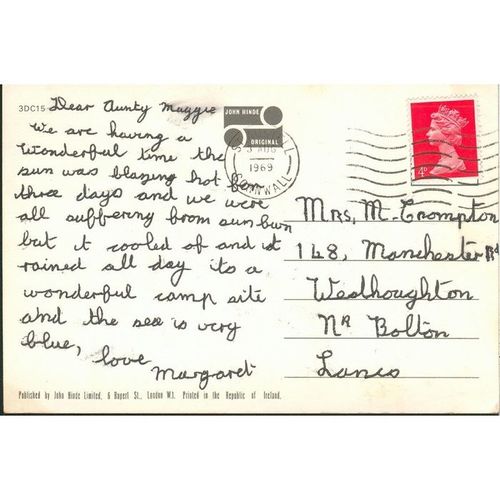 3DC15
Dear Aunty Maggie
We are having a
wonderful time the
sun was blazing hot for
three days and we were
all suffering from sunburn
but it cooled of and it
rained all day its a
wonderful camp site
and the sea is very
blue, love
Margaret
JOHN HINDE
ORIGINAL
AUG
1969
CORNWALL
4ᴾ
Mrs, M. Crompton
148, Manchester Rd
Westhoughton
Nr Bolton
Lancs
Published by John Hinde Limited, 6 Rupert St., London W.1. Printed in the Republic of Ireland.